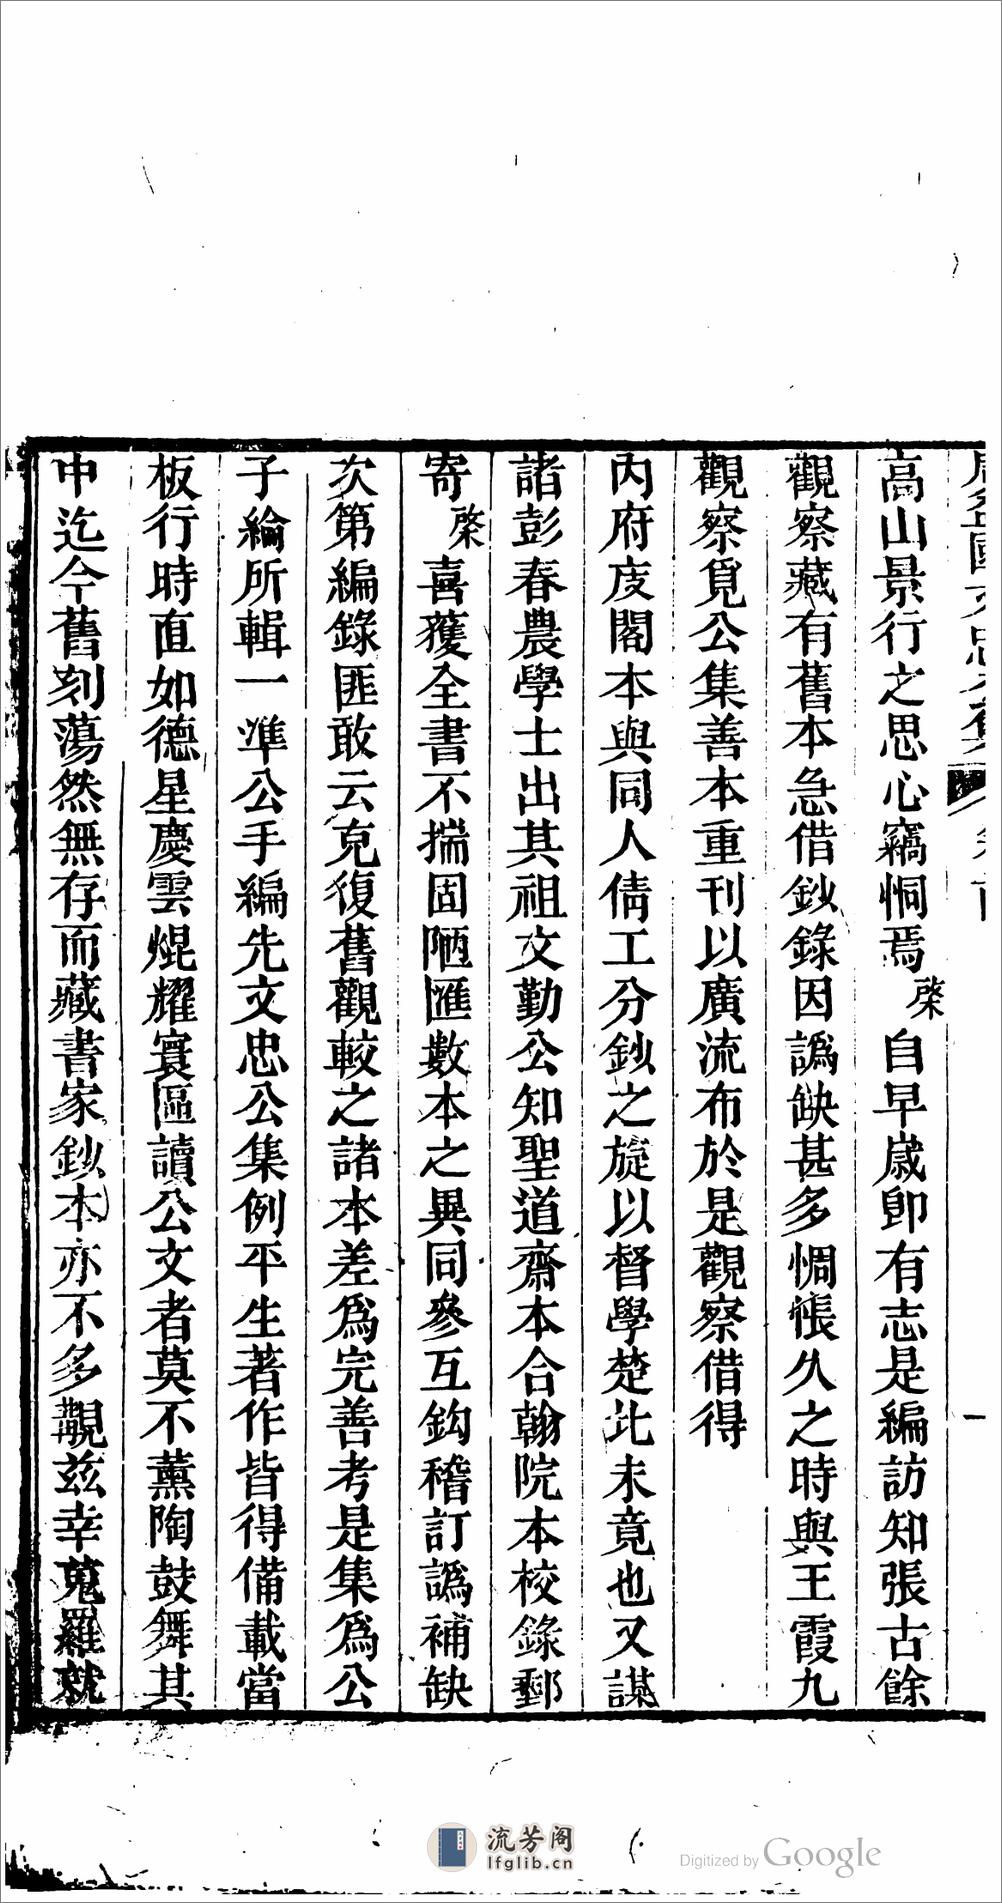 高山景行之思心竊恫焉棨自早歲卽有志是編訪知張古餘
觀察藏有舊本急借鈔錄因譌缺甚多惆悵久之時與王霞九
觀察覓公集善本重刊以廣流布於是觀察借得
內府庋閣本與同人倩工分鈔之旋以督學楚北未竟也又謀
諸彭春農學士出其祖文勤公知聖道齋本合翰院本校錄郵
寄棨喜獲全書不揣固陋匯數本之異同參互鈎稽訂譌補缺
次第編錄匪敢云克復舊觀較之諸本差爲完善考是集爲公
子綸所輯一準公手編先文忠公集例平生著作皆得備載當
板行時直如德星慶雲焜耀寰區讀公文者莫不薰陶鼓舞其
中迄今舊刻蕩然無存而藏書家鈔本亦不多覯茲幸蒐羅就
流芳阁
lfglib.cn
Digitized by Google